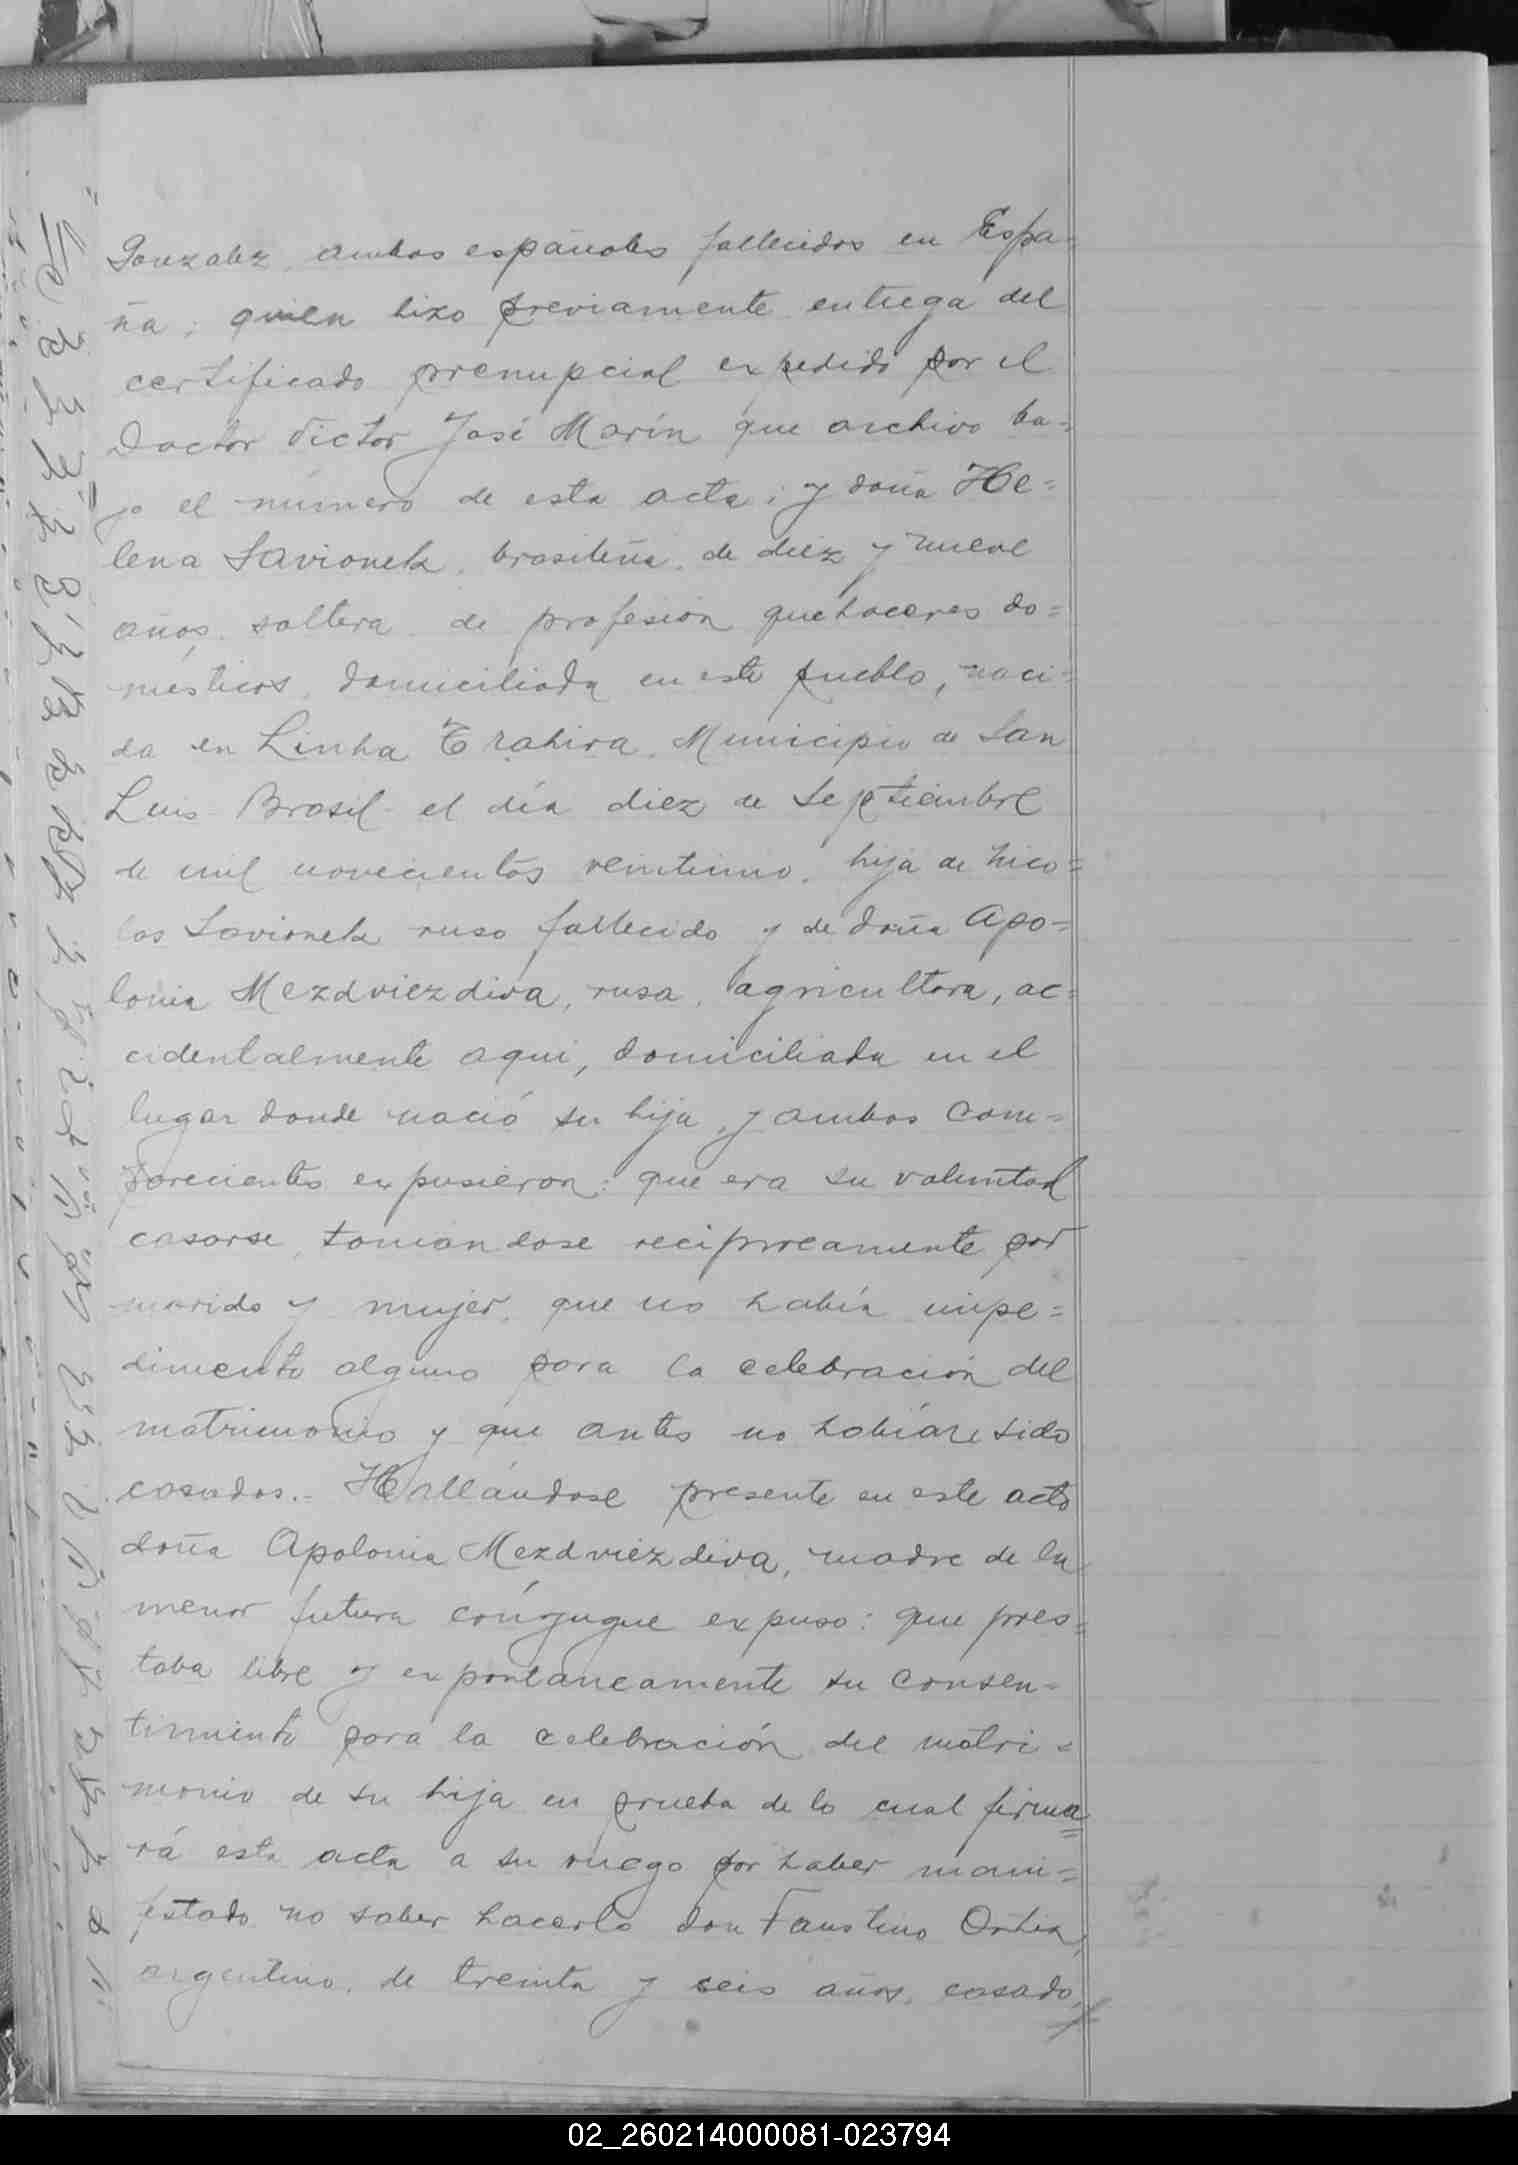 Gonzalez, ambos españoles fallecidos en Espa=
ña; quien hizo previamente entrega del
certificado prenupcial expedido por el
Doctor Victor José Marín que archivo ba=
jo el número de esta acta; y doña He=
lena Savionek, brasileña, de diez y nueve
años, soltera, de profesión quehaceres do=
mésticos, domiciliada en este pueblo, naci=
da en Linha Trahira, Municipio de San
Luis Brasil el día diez de Septiembre
de mil novecientos veintiuno, hija de Nico=
las Savionek ruso fallecido y de doña Apo=
lonia Mezdviezdiva, rusa, agricultora, ac=
cidentalmente aqui, domiciliada en el
lugar donde nació su hija, y ambos com=
parecientes expusieron: que era su voluntad
casarse, tomándose reciprocamente por
marido y mujer, que no había impe=
dimento alguno para la celebración del
matrimonio y que antes no habían sido
casados.= Hallándose presente en este acto
doña Apolonia Mezdviezdiva, madre de la
menor futura cónyugue expuso: que pres=
taba libre y expontaneamente su consen=
timiento para la celebración del matri=
monio de su hija en prueba de lo cual firma=
rá esta acta a su ruego por haber mani=
festado no saber hacerlo don Faustino
argentino, de treinta y seis años, casado,
02_260214000081-023794